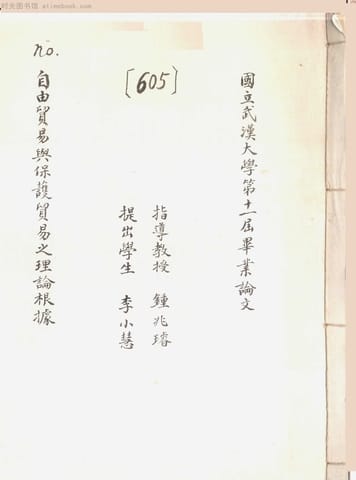 时光图书馆 - atimebook.com
國立武漢大學第十一屆畢業論文
[605]
指導教授 鍾兆璿
提出學生 李小慧
no.
自由貿易與保護貿易之理論根據